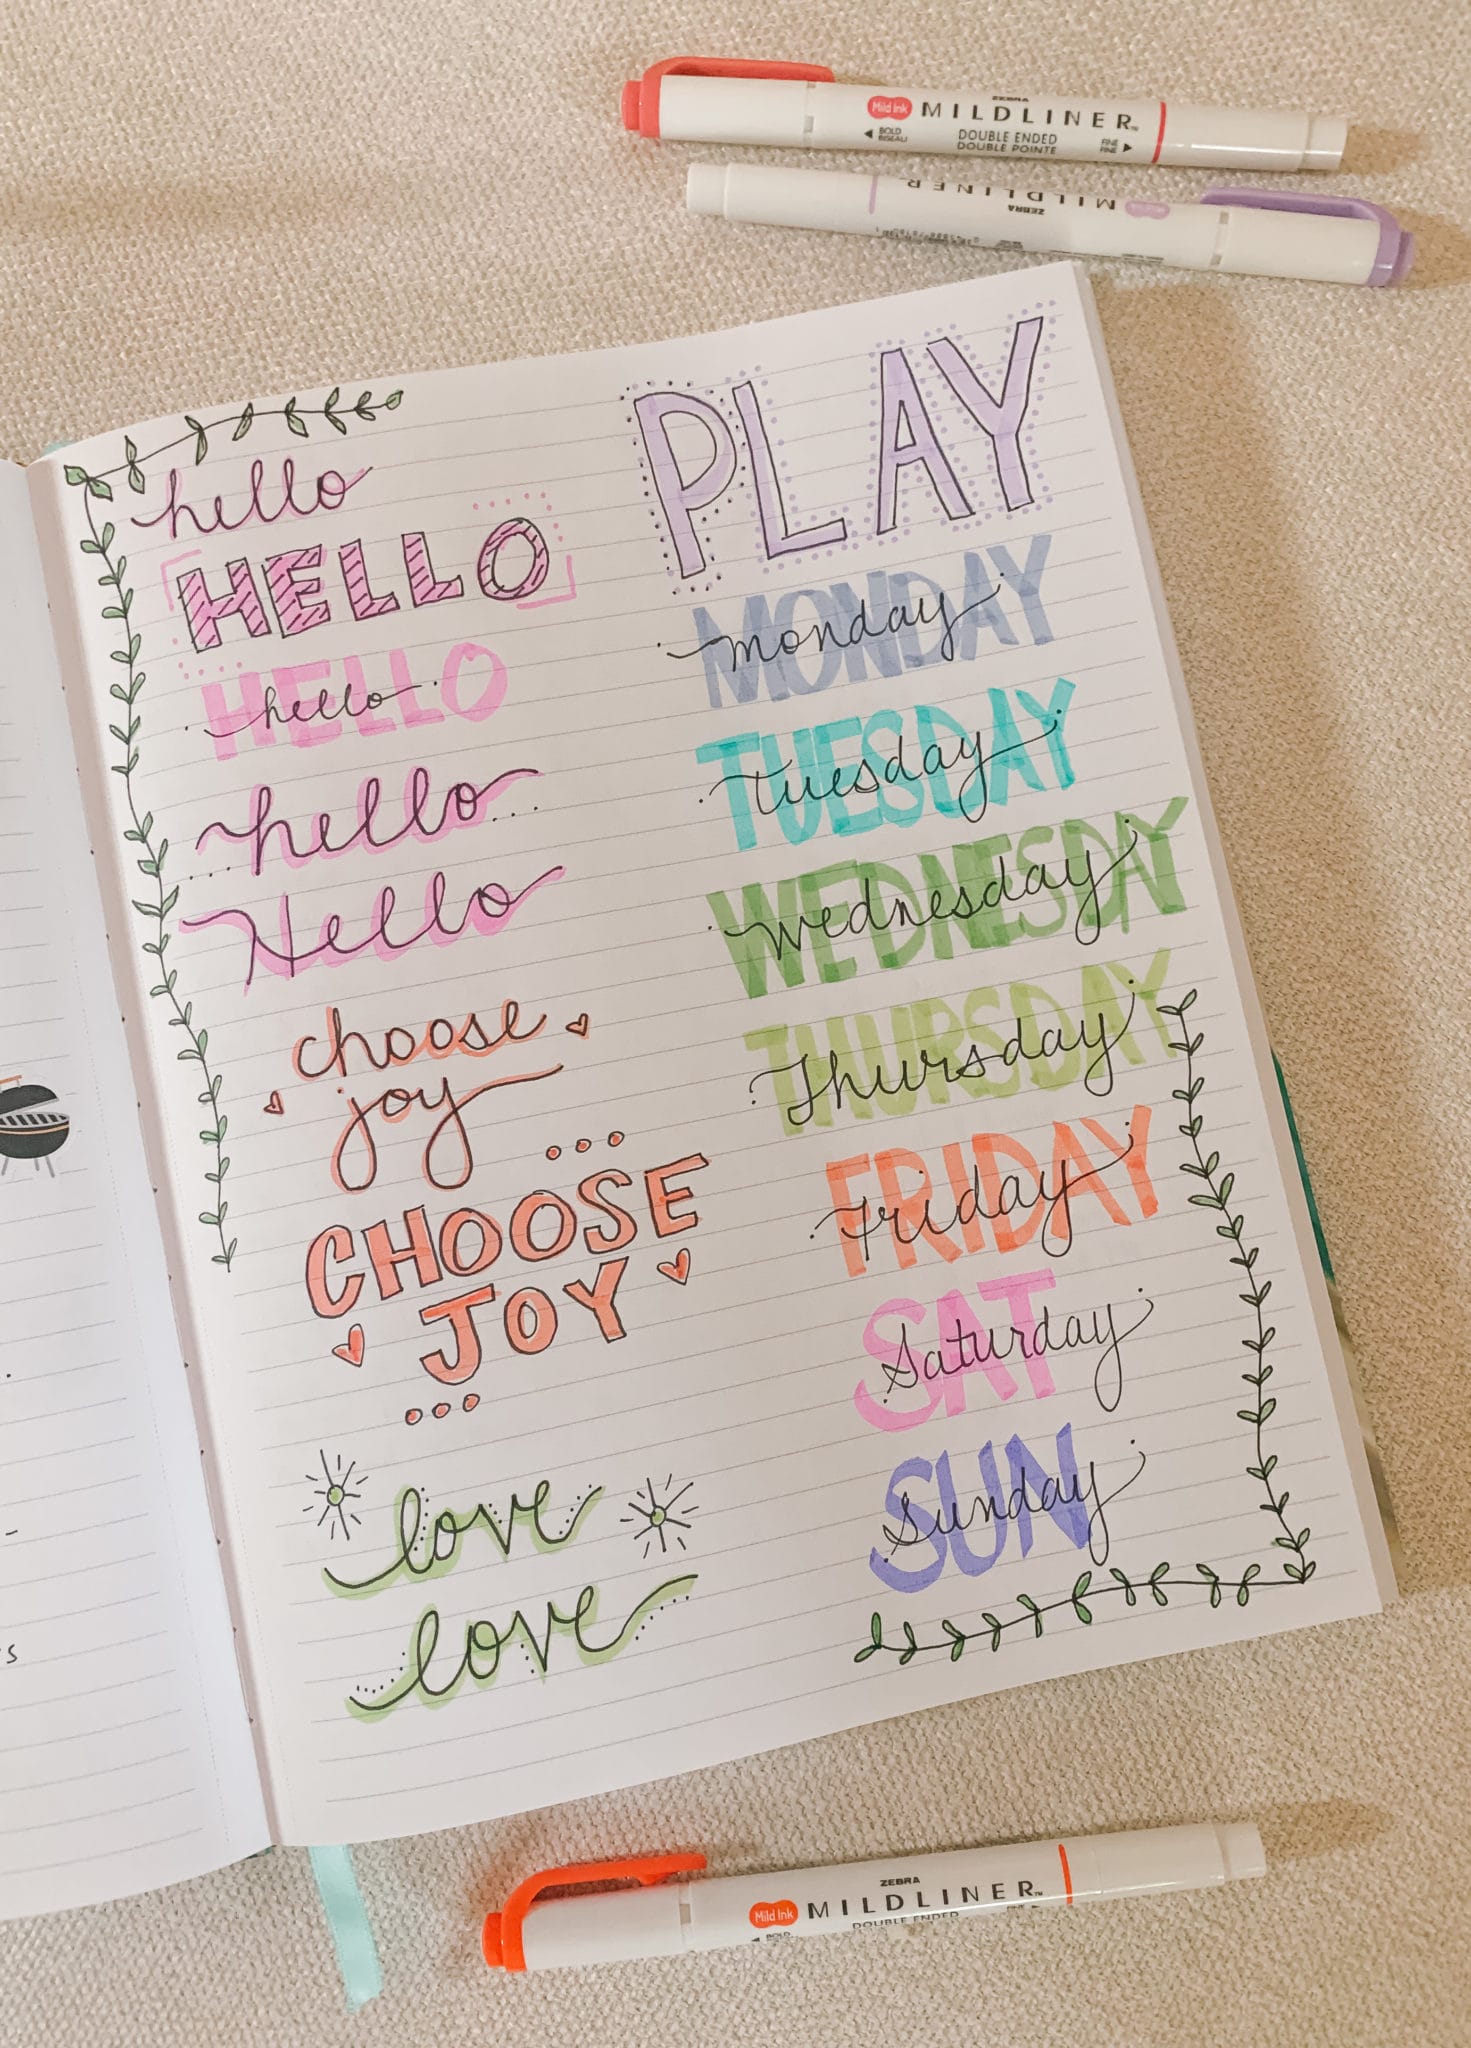 Mild Ink ZEBRA MILDLINER™
◀ BOLD BISEAU DOUBLE ENDED DOUBLE POINTE FINE FINE ▶
ZEBRA MILDLINER
hello
HELLO
HELLO
hello
hello
Hello
choose
joy
CHOOSE
JOY
love
love
PLAY
MONDAY
monday
TUESDAY
Tuesday
WEDNESDAY
wednesday
THURSDAY
Thursday
FRIDAY
Friday
SAT
Saturday
SUN
Sunday
Mild Ink ZEBRA MILDLINER™
◀ BOLD DOUBLE ENDED FINE